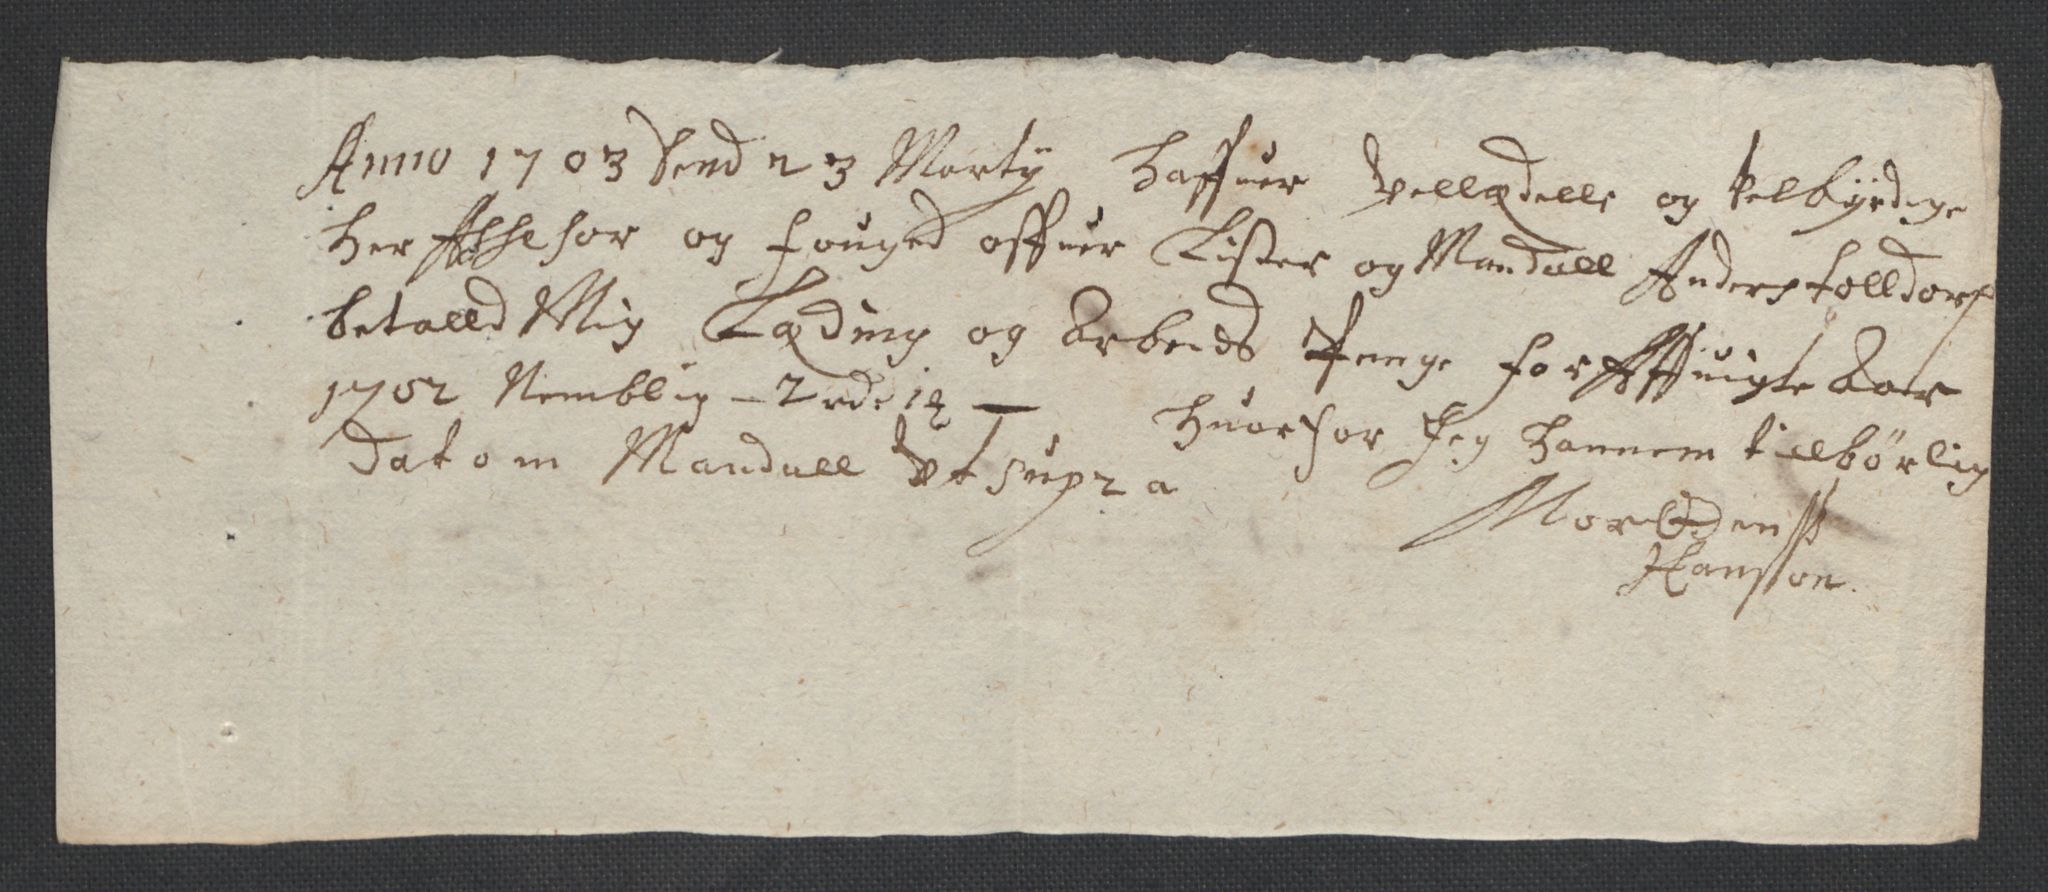 Anno 1703 Send 23 Martÿ Haffuer Vellædelle og Velbÿrdige
Her Assesor og Fouged offuer Lister og Mandall Anders Tolldorph
betalld Mig Læding og Arbeids Penge for Affuigte Aar
1702 Nemblig – 2 rd: 1 – Huorfor Jeg hannem tilbørlig
Datom Mandall Vt supra
Morten
Hansøn